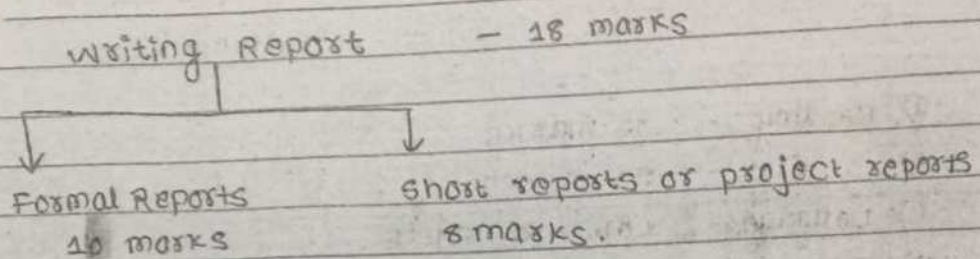 Writing Report - 18 marks
Formal Reports short reports or project reports
10 marks 8 marks.